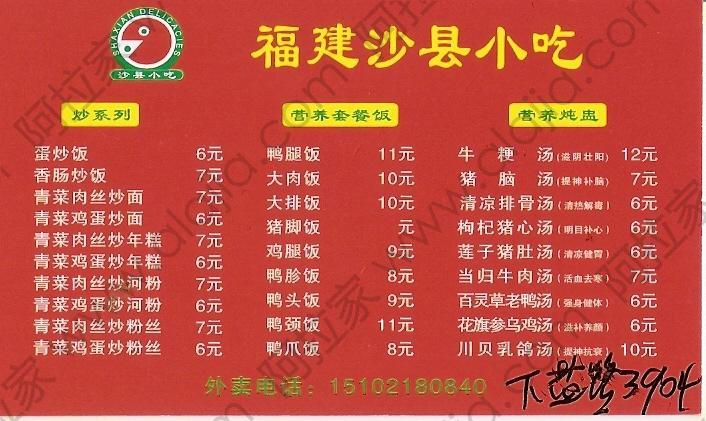 SHAXIAN DELICACIES
沙县小吃
福建沙县小吃
炒系列
蛋炒饭 6元
香肠炒饭 7元
青菜肉丝炒面 7元
青菜鸡蛋炒面 6元
青菜肉丝炒年糕 7元
青菜鸡蛋炒年糕 6元
青菜肉丝炒河粉 7元
青菜鸡蛋炒河粉 6元
青菜肉丝炒粉丝 7元
青菜鸡蛋炒粉丝 6元
营养套餐饭
鸭腿饭 11元
大肉饭 10元
大排饭 10元
猪脚饭 元
鸡腿饭 9元
鸭胗饭 8元
鸭头饭 9元
鸭颈饭 11元
鸭爪饭 8元
营养炖盅
牛粳汤(滋阴壮阳) 12元
猪脑汤(提神补脑) 7元
清凉排骨汤(清热解毒) 6元
枸杞猪心汤(明目补心) 6元
莲子猪肚汤(清凉健胃) 6元
当归牛肉汤(活血去寒) 7元
百灵草老鸭汤(强身健体) 6元
花旗参乌鸡汤(滋补养颜) 6元
川贝乳鸽汤(提神抗衰) 10元
外卖电话：15102180840
3904
阿拉家 www.alaijia.com